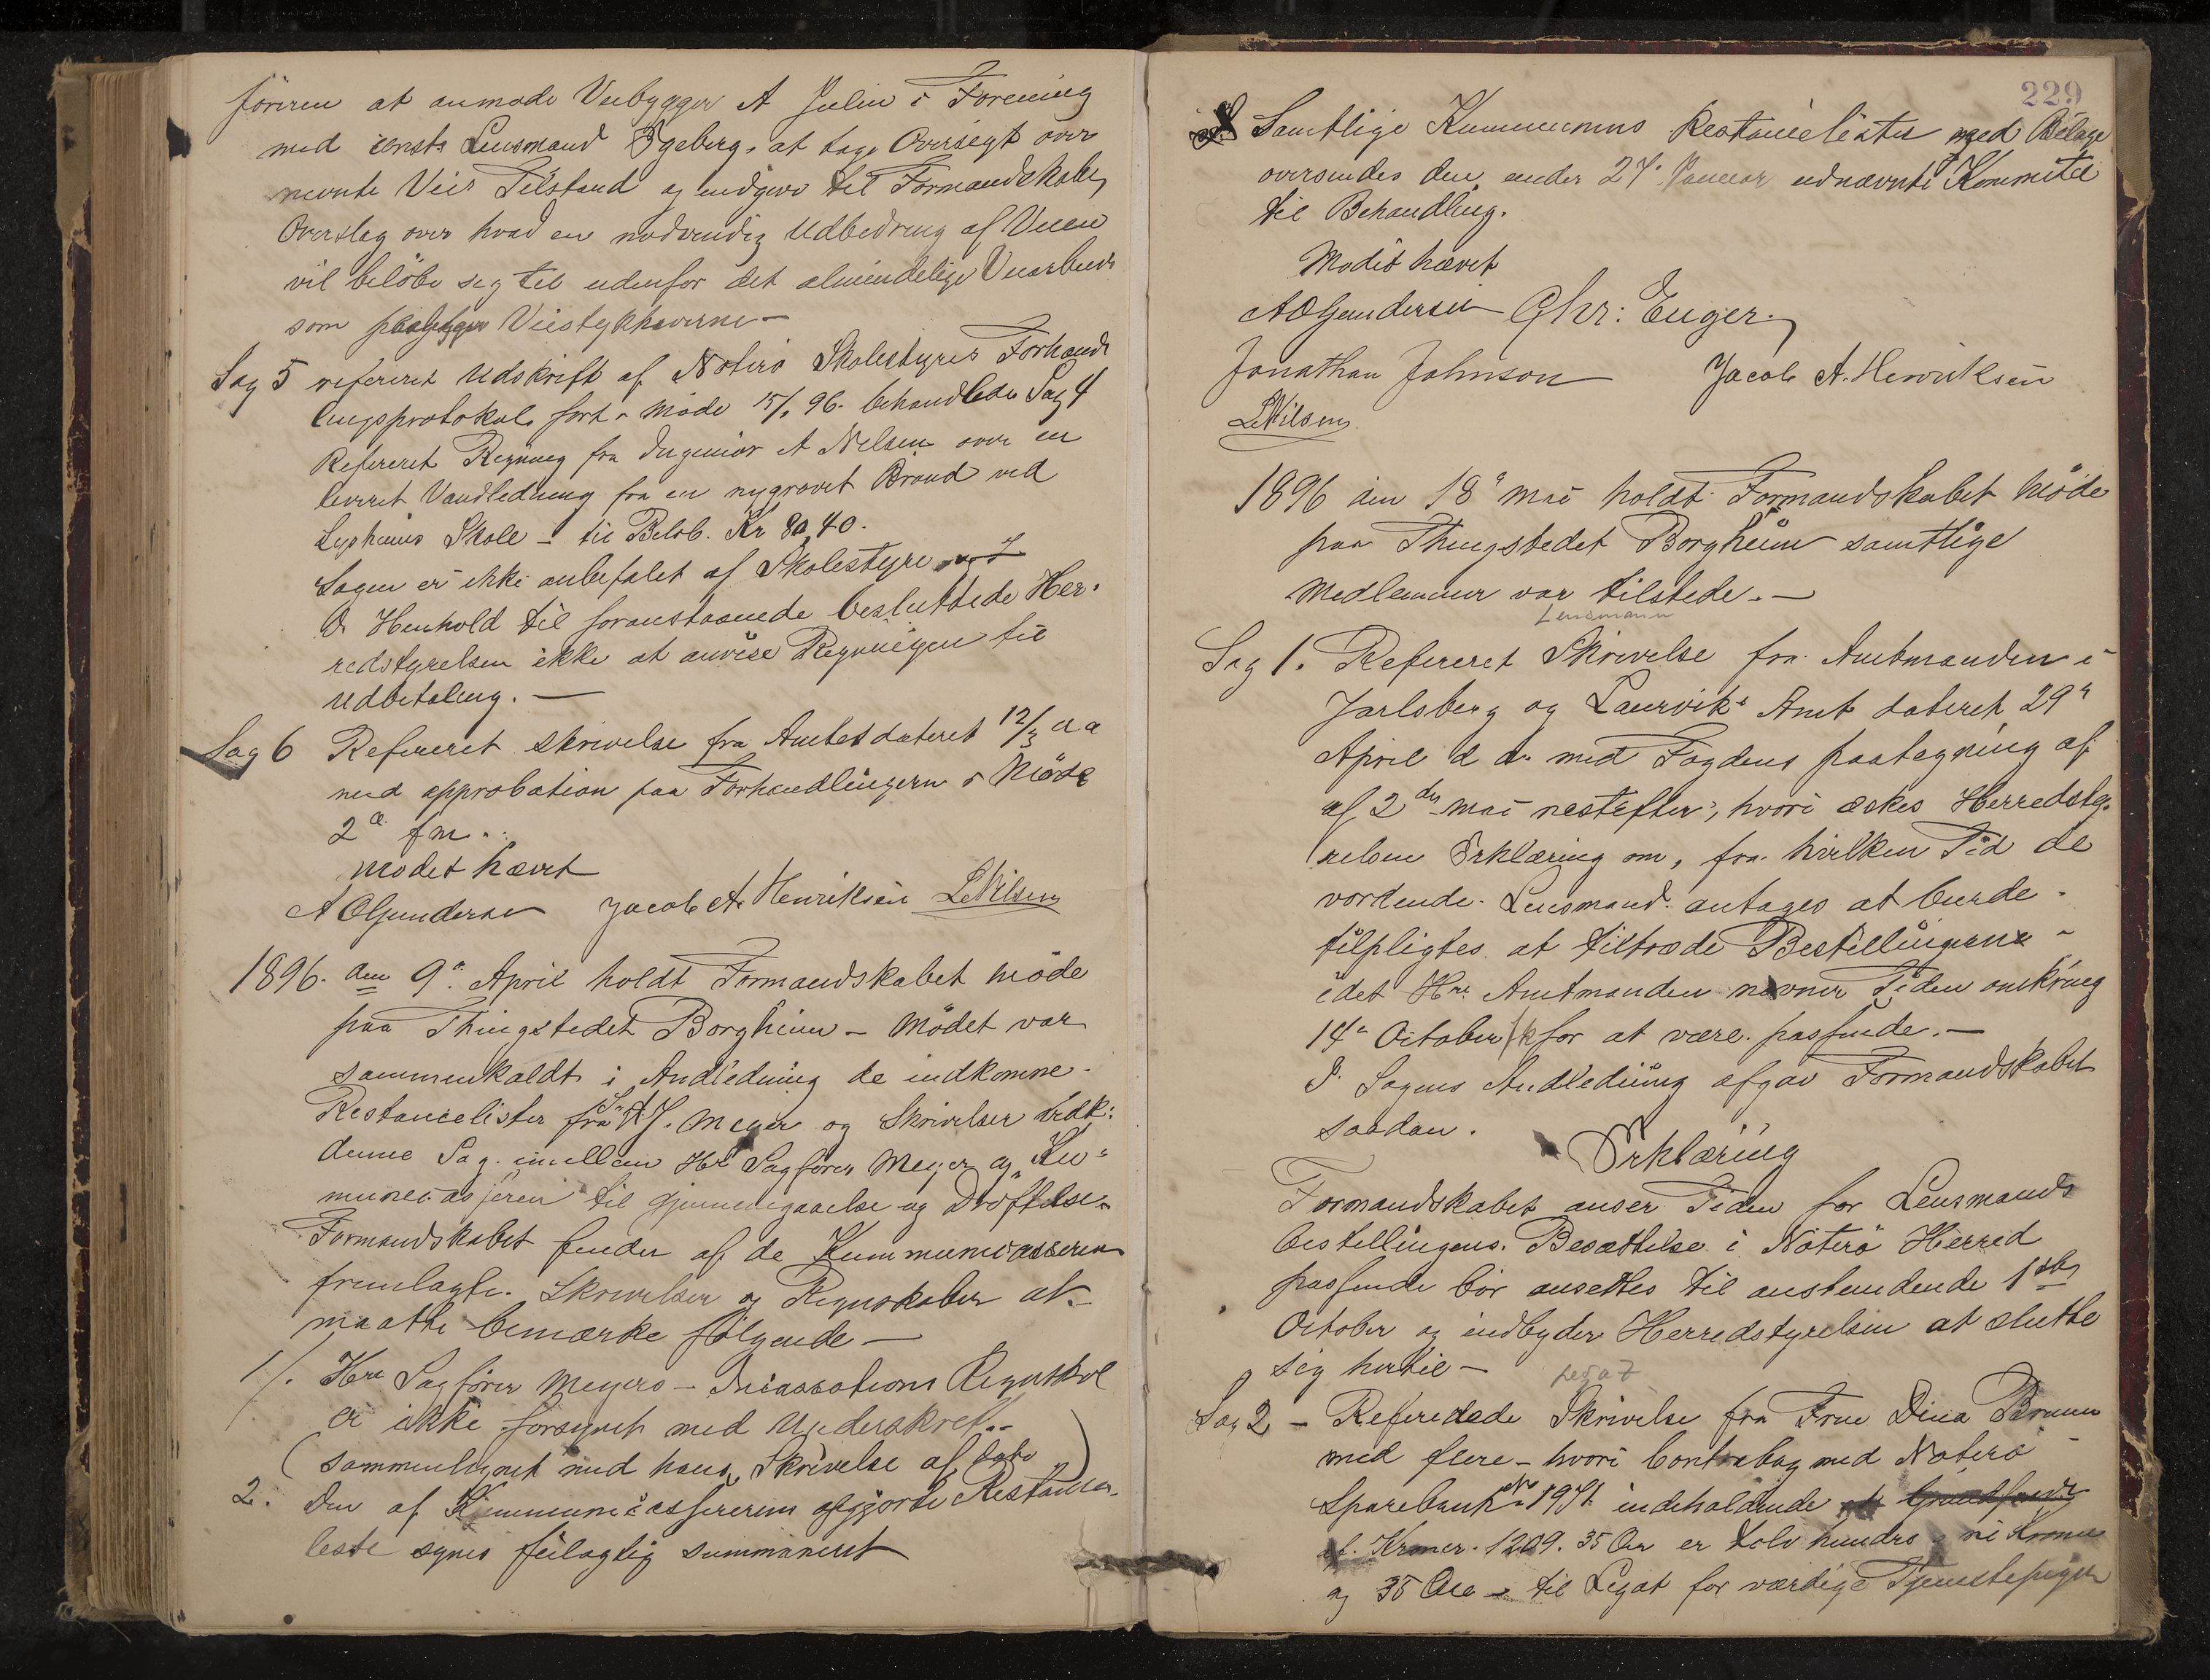 föreren at anmode Veibygger A Julin i Forening
med const. Lensmand Ögeberg, at tage Oversigt over
nevnte Veis Tilstand og indgive til Formandskabet
Overslag over hvad en nødvendig Udbedring af Veien
vil beløbe sig til udenfor det almindelige Veiarbeide
som Veistykkhaverne —
Sag 5 refereret Udskrift af Nøterø Skolestyres Forhand
lingsprotokol, ført i Møde 15/1 96. behandlede Sag 4
Refereret Regning fra Ingeniør A Nelsen over en
leveret Vandledning fra en nygravet Brønd ved
Lysheims Skole — til Beløb. Kr 80,40.
Sagen er ikke anbefalet af Skolestyre
I Henhold til foranstaaende besluttede Her-
redstyrelsen ikke at anvise Regningen til
Udbetaling. —
Sag 6 Refereret skrivelse fra Amtet dateret 12/3 d a
med approbation paa Forhandlingern i Møde
2d f m.
Mødet hævet
A O Gundersen Jacob A. Henriksen L Nilsen
1896. den 9de April holdt Formandskabet møde
paa Thingstedet Borgheim — Mødet var
sammenkaldt i Andledning de indkomne
Restancelister fra S. A J. Meyer og Skrivelser vedk:
denne Sag. imellem Hr Sagfører Meyer og "Ku-
munecasjeren" til Gjennemgaaelse og Drøftelse.
Formandskabet finder af de Kummunecasseren
fremlagte. Skrivelser og Regnskaber at
maatte bemærke følgende —
1/. Hrr Sagfører Meyers — Incassations Regnskab
er ikke forsynet med Underskrift. —
(sammenlignet med hans Skrivelse af dato)
2. Den af Kummunecassereren afgjorte Restance-
leste synes feilagtig summeneret
229
Samtlige Kummunens Restancelister med Bilage
oversendes den under 27. Januar udnævnte Kommite
til Behandling.
Mødet hævet
A O Gundersen Chr: Enger.
Jonathan Johnson Jacob A. Henriksen
L Nilsen
1896 den 18de mai holdt Formandskabet Møde
paa Thingstedet Borgheim samtlige
Medlemmer var tilstede. —
Lensmann
Sag 1. Refereret Skrivelse fra Amtmanden i
Jarlsberg og Laurviks Amt dateret 29de
April d a. med Fogdens paategning af
af 2den mai nestefter, hvori æskes Herredsty-
relsen Erklæring om, fra hvilken Tid de
vordende Lensmand antages at burde
tilpligtes at tiltræde Bestillingene —
idet Hrr Amtmanden nevner Tiden omkring
14de October for at være passende. —
I Sagens Andledning afgav Formandskabet
saadan.
Erklæring
Formandskabet anser Tiden for Lensmands
bestillingens Besættelse i Nøterø Herred
passende bør ansettes til anstundende 1ste
October og indbyder Herredstyrelsen at slutte
sig hertil —
legat
Sag 2 — Refererede Skrivelse fra Frue Dina Bruun
med flere — hvori Contrabog med Nøterø
Sparebank No 1971 indeholdende
Kroner. 1209. 35 Øre er tolv hundre ni Kroner
og 35 Øre — til Legat for værdige Tjenestepiger